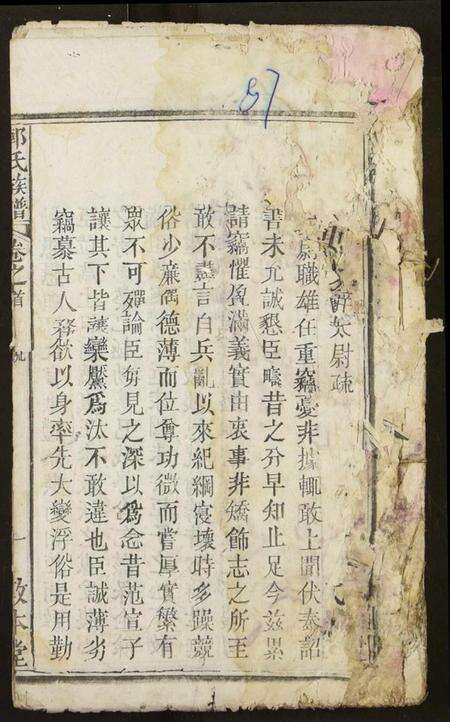 57
太尉疏
尉職雄任重竊憂非據輒敢上聞伏奉詔
書未允誠懇臣疇昔之分早知止足今茲累
請竊懼盈滿義實由衷事非矯飾志之所至
敢不盡言自兵亂以來紀綱寖壞時多躁競
俗少廉隅德薄而位尊功微而嘗厚實蘩有
眾不可殫論臣每見之深以爲念昔范宣子
讓其下皆讓欒黶爲汰不敢違也臣誠薄劣
竊慕古人務欲以身率先大變浮俗是用勤
郭氏族譜
卷之首
敦本堂